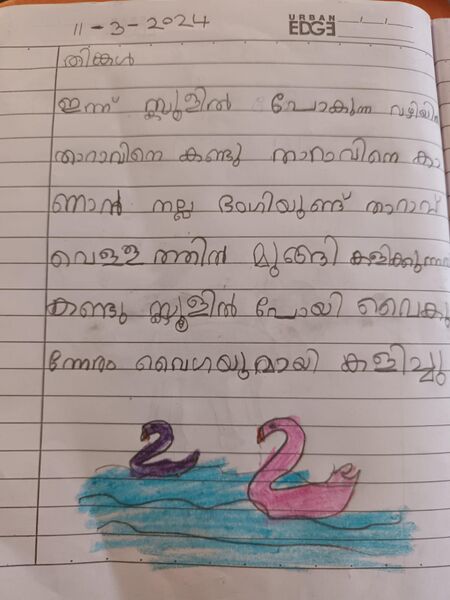 11-3-2024
URBAN
EDGE
തിങ്കൾ
ഇന്ന് സ്കൂളിൽ പോകുന്ന വഴിയിൽ
താറാവിനെ കണ്ടു താറാവിനെ കാ
ണാൻ നല്ല ഭംഗിയുണ്ട് താറാവ്
വെള്ളത്തിൽ മുങ്ങി കളിക്കുന്നത
കണ്ടു സ്കൂളിൽ പോയി വൈകു
ന്നേരം വൈഗയുമായി കളിച്ചു